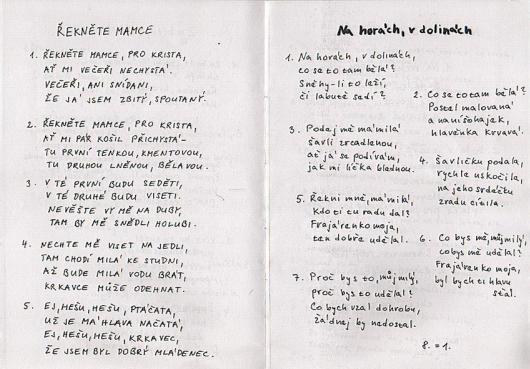 ŘEKNĚTE MAMCE
1. ŘEKNĚTE MAMCE, PRO KRISTA,
AŤ MI VEČEŘI NECHYSTÁ.
VEČEŘI, ANI SNÍDANI,
ŽE JÁ JSEM ZBITÝ, SPOUTANÝ.
2. ŘEKNĚTE MAMCE, PRO KRISTA,
AŤ MI PÁR KOŠIL PŘICHYSTÁ -
TU PRVNÍ TENKOU, KMENTOVOU,
TU DRUHOU LNĚNOU, BĚLAVOU.
3. V TÉ PRVNÍ BUDU SEDĚTI,
V TÉ DRUHÉ BUDU VISETI.
NEVĚŠTE VY MĚ NA DUBY,
TAM BY MĚ SNĚDLI HOLUBI.
4. NECHTE MĚ VISET NA JEDLI,
TAM CHODÍ MILÁ KE STUDNI,
AŽ BUDE MILÁ VODU BRÁT,
KRKAVCE MŮŽE ODEHNAT.
5. EJ, HEŠU, HEŠU, PTÁČATA,
UŽ JE MÁ HLAVA NAČATÁ,
EJ, HEŠU, HEŠU, KRKAVEC,
ŽE JSEM BYL DOBRÝ MLÁDENEC.
Na horách, v dolinách
1. Na horách, v dolinách,
co se to tam bělá?
Sněhy-li to leží,
či labutě sedí?
2. Co se to tam bělá?
Postel malovaná
a na ní šohajek,
hlavěnka krvavá.
3. Podej mě má milá
šavli zrcadlenou,
ať já se podívám,
jak mi líčka blednou.
4. Šavličku podala,
rychle uskočila,
na jeho srdečku
zradu cítila.
5. Řekni mně, má milá,
Kdo ti tu radu dal?
Frajárenko moja,
ten dobře udělal.
6. Co bys mě, můj milý,
co bys mě udělal?
Frajárenko moja,
byl bych ti hlavu
sťal.
7. Proč bys to, můj milý,
proč bys to udělal?
Co bych vzal do hrobu,
žádnej by nedostal.
8. = 1.